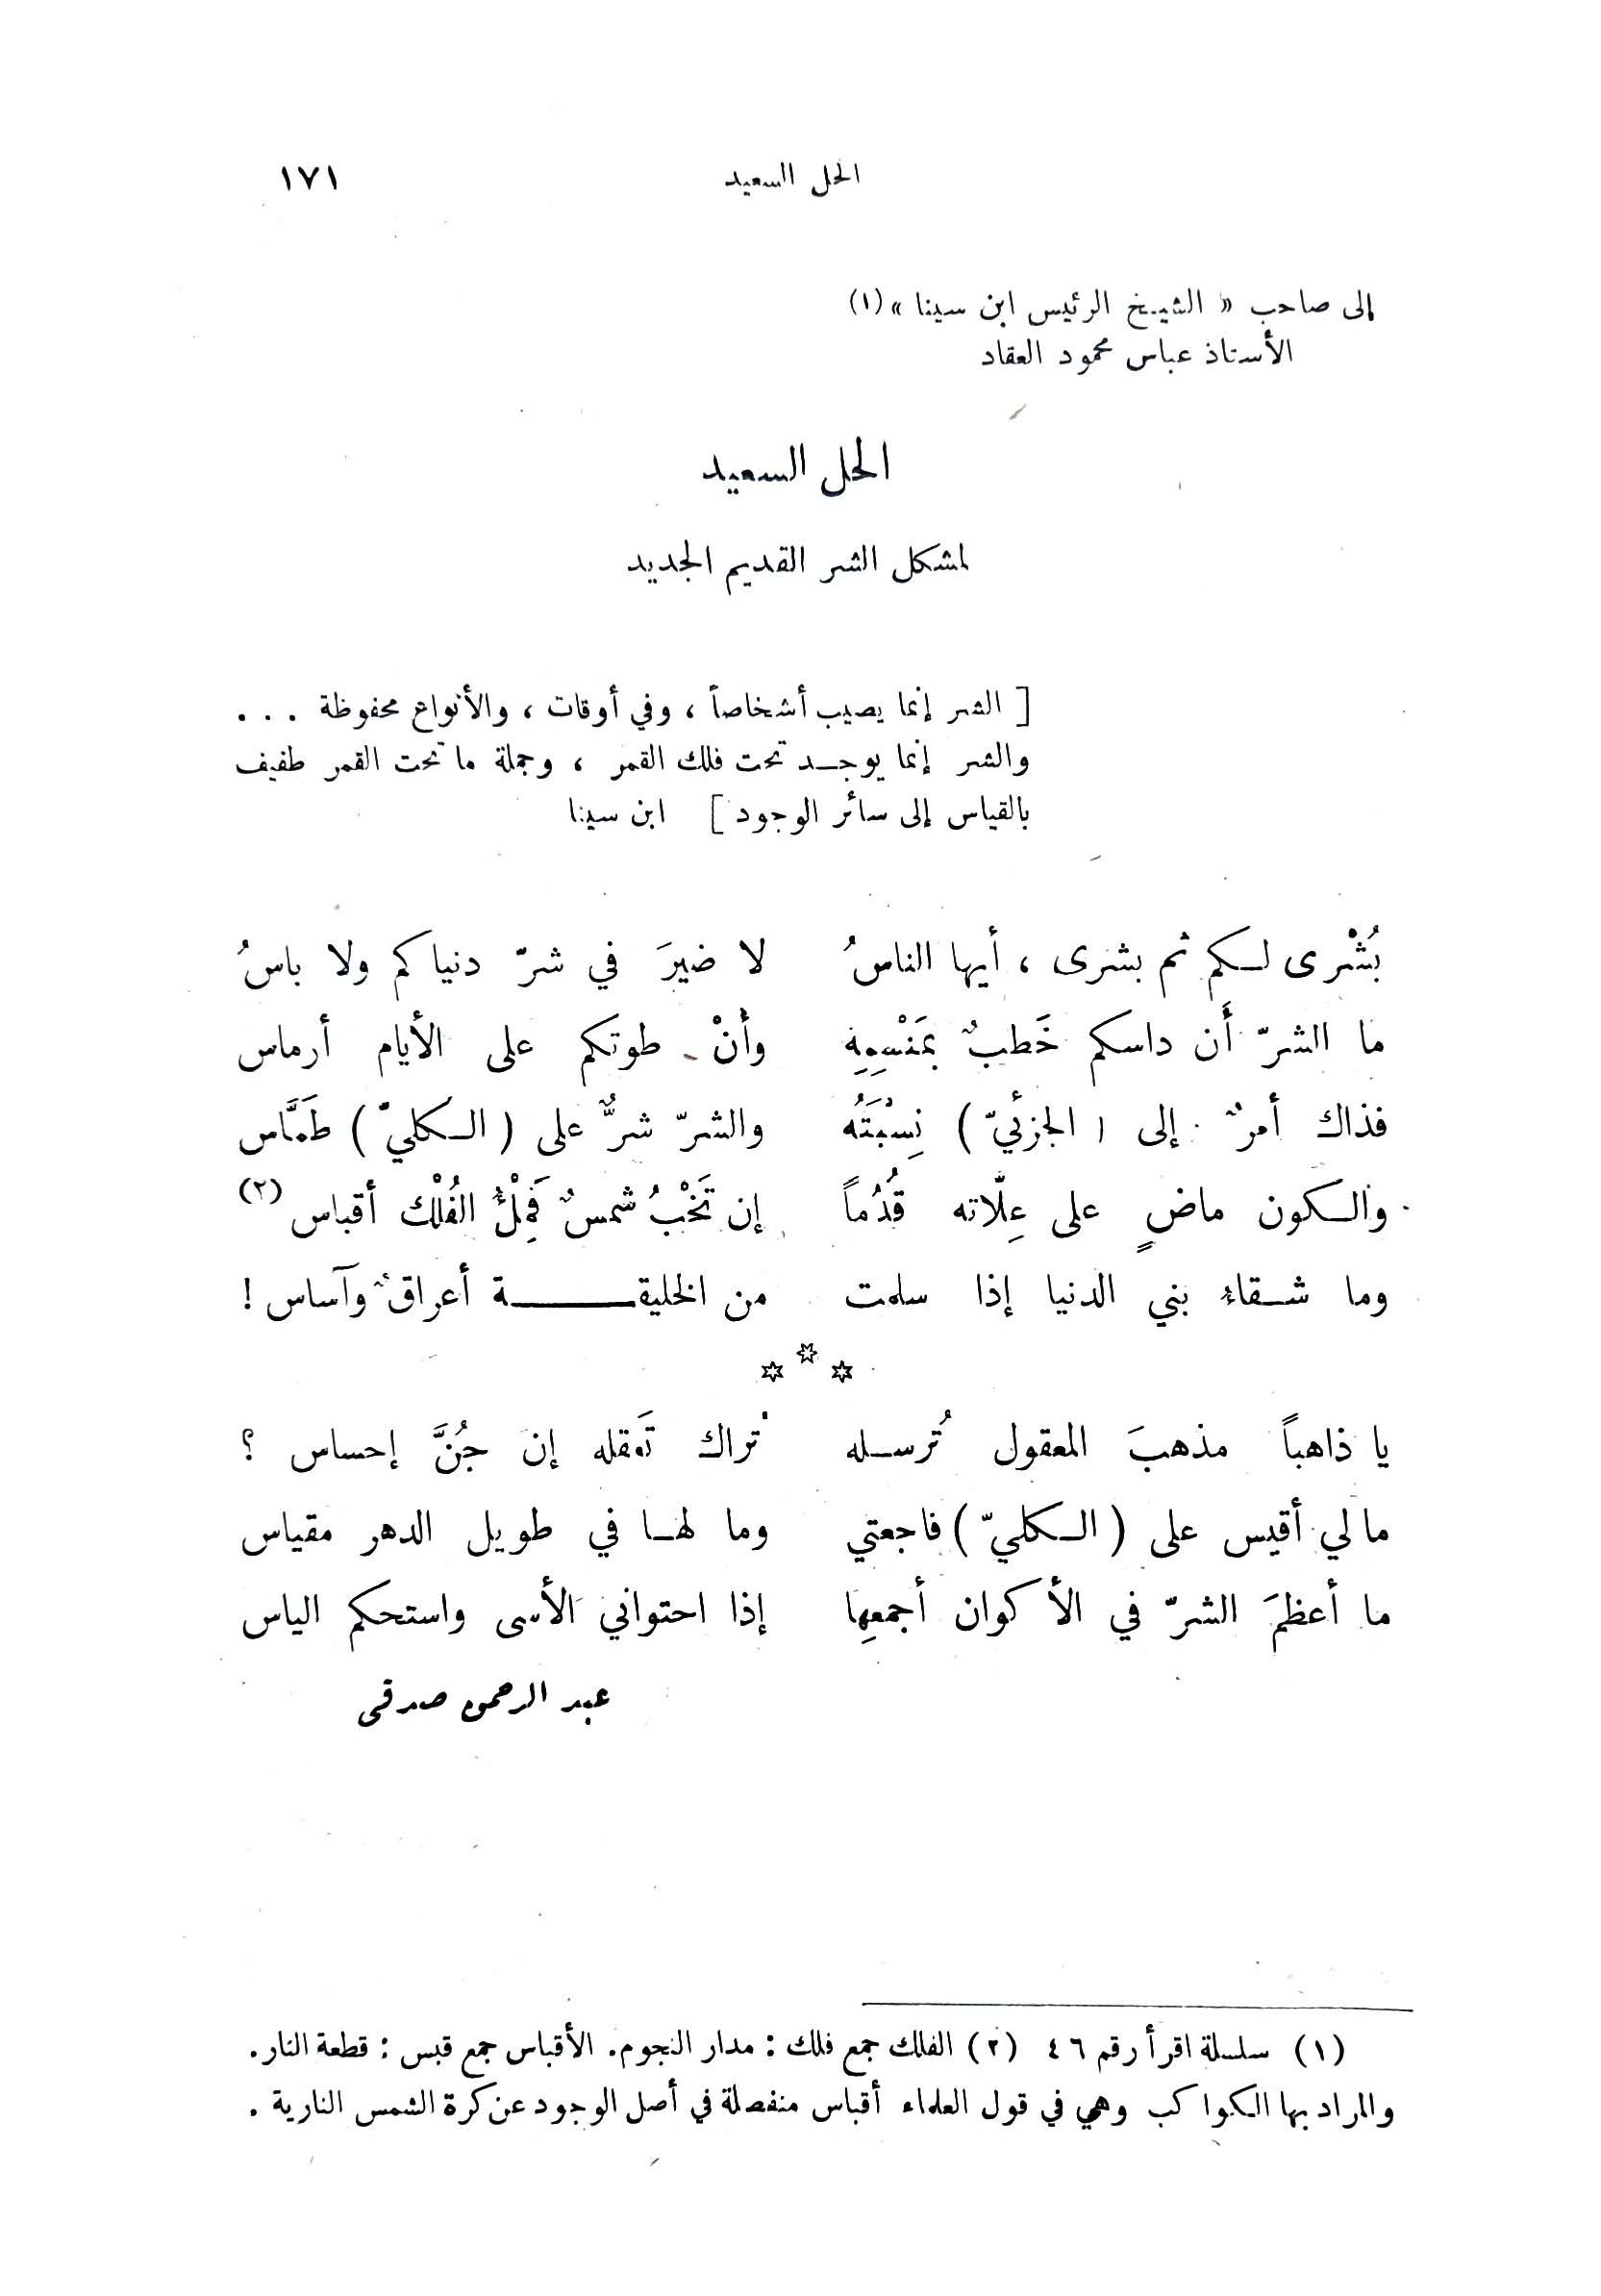 الحل السعيد ١٧١
إلى صاحب « الشيخ الرئيس ابن سينا » (١)
الأستاذ عباس محمود العقاد
الحل السعيد
لمشكل الشر القديم الجديد
[ الشر إنما يصيب أشخاصاً ، وفي أوقات ، والأنواع محفوظة . . .
والشر إنما يوجد تحت فلك القمر ، وجملة ما تحت القمر طفيف
بالقياس إلى سائر الوجود ] ابن سينا
بُشْرى لكم ثم بشرى ، أيها الناسُ لا ضيرَ في شرّ دنياكم ولا باسُ
ما الشرّ أَن داسكم خَطبٌ بمَنْسِمِهِ وأنْ طوتكم على الأيام أرماس
فذاك أمرٌ إلى ( الجزئيّ ) نِسْبَتُهُ والشرّ شرٌّ على ( الكليّ ) طَمَّاس
والكون ماضٍ على عِلّاته قُدُماً إن تَخْبُ شمسٌ فَمِلْءُ الفُلْك أقباس (٢)
وما شقاء بني الدنيا إذا سلمت من الخليقة أعراقٌ وآساس !
* * *
يا ذاهباً مذهبَ المعقول تُرسله تُراك تَعقله إن جُنَّ إحساس ؟
ما لي أقيس على ( الكليّ ) فاجعتي وما لها في طويل الدهر مقياس
ما أعظمَ الشرّ في الأكوان أجمعِها إذا احتواني الأسى واستحكم الياس
عبد الرحمن صدقي
(١) سلسلة اقرأ رقم ٤٦ (٢) الفلك جمع فلك : مدار النجوم. الأقباس جمع قبس : قطعة النار.
والمراد بها الكواكب وهي في قول العلماء أقباس منفصلة في أصل الوجود عن كرة الشمس النارية .